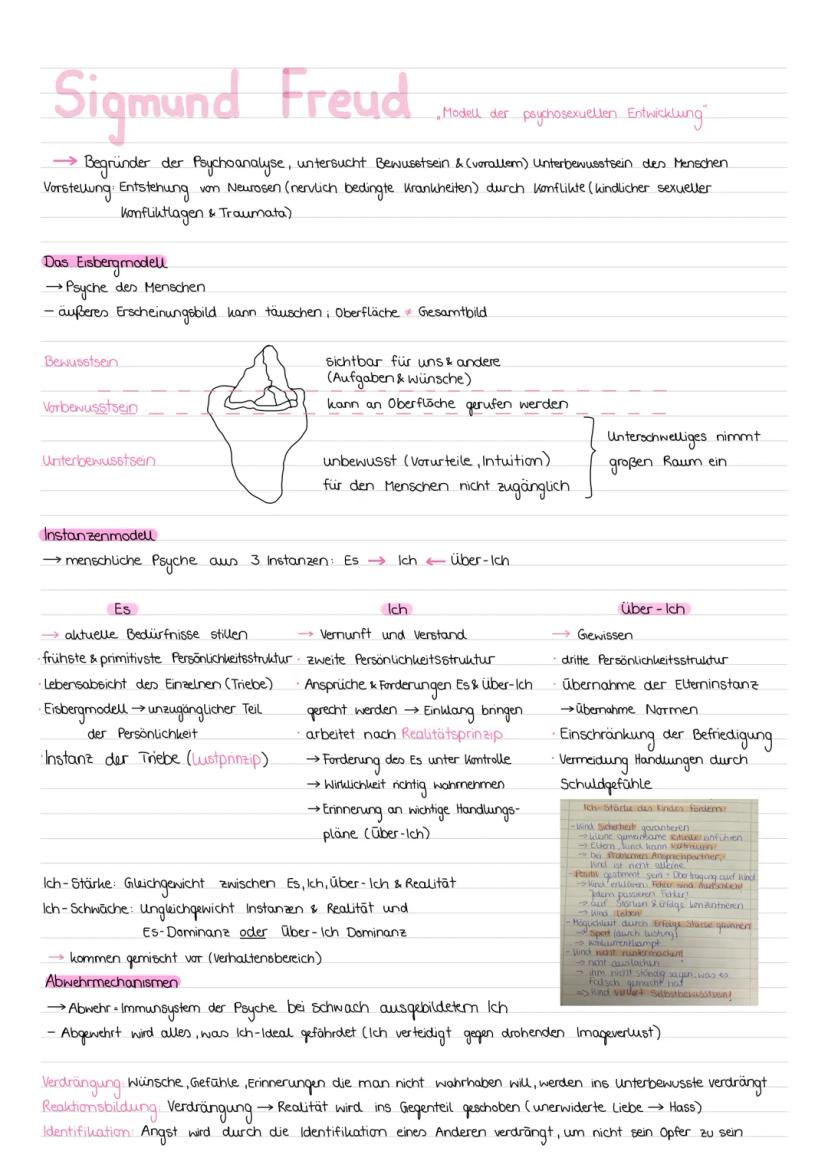 Sigmund Freud „Modell der psychosexuellen Entwicklung"
→ Begründer der Psychoanalyse, untersucht Bewusstsein & (vorallem) Unterbewusstsein des Menschen
Vorstellung: Entstehung von Neurosen (nervlich bedingte Krankheiten) durch Konflikte (kindlicher sexueller
Konfliktlagen & Traumata)
Das Eisbergmodell
→ Psyche des Menschen
– äußeres Erscheinungsbild kann täuschen; Oberfläche ≠ Gesamtbild
Bewusstsein
sichtbar für uns & andere
(Aufgaben & Wünsche)
Vorbewusstsein
kann an Oberfläche gerufen werden
Unterbewusstsein
unbewusst (Vorurteile, Intuition)
für den Menschen nicht zugänglich
Unterschwelliges nimmt
großen Raum ein
Instanzenmodell
→ menschliche Psyche aus 3 Instanzen: Es → Ich ← Über-Ich
Es
→ aktuelle Bedürfnisse stillen
· frühste & primitivste Persönlichkeitsstruktur
· Lebensabsicht des Einzelnen (Triebe)
· Eisbergmodell → unzugänglicher Teil
der Persönlichkeit
· Instanz der Triebe (Lustprinzip)
Ich
→ Vernunft und Verstand
· zweite Persönlichkeitsstruktur
· Ansprüche & Forderungen Es & Über-Ich
gerecht werden → Einklang bringen
· arbeitet nach Realitätsprinzip
→ Forderung des Es unter Kontrolle
→ Wirklichkeit richtig wahrnehmen
→ Erinnerung an wichtige Handlungs-
pläne (Über-Ich)
Über-Ich
→ Gewissen
· dritte Persönlichkeitsstruktur
· Übernahme der Elterninstanz
→ Übernahme Normen
· Einschränkung der Befriedigung
· Vermeidung Handlungen durch
Schuldgefühle
Ich-Stärke des Kindes fördern:
– Kind Sicherheit garantieren
→ kleine gemeinsame Rituale einführen
→ Eltern, Kind kann vertrauen!
→ bei Problemen Ansprechpartner,
Kind ist nicht alleine
– Positiv gestimmt sein – Übertragung auf Kind
→ Kind erklären: Fehler sind menschlich!
Jedem passieren Fehler!
→ auf Stärken & Erfolge konzentrieren
→ Kind loben!
– Möglichkeit durch Erfolge Stärke gewinnen
→ Sport (durch Leistung)
→ Konkurrenzkampf
– Kind nicht runtermachen!
→ nicht auslachen
→ ihm nicht ständig sagen, was es
falsch gemacht hat
=> Kind verliert Selbstbewusstsein!
Ich-Stärke: Gleichgewicht zwischen Es, Ich, Über-Ich & Realität
Ich-Schwäche: Ungleichgewicht Instanzen & Realität und
Es-Dominanz oder Über-Ich Dominanz
→ kommen gemischt vor (Verhaltensbereich)
Abwehrmechanismen
→ Abwehr = Immunsystem der Psyche bei schwach ausgebildetem Ich
– Abgewehrt wird alles, was Ich-Ideal gefährdet (Ich verteidigt gegen drohenden Imageverlust)
Verdrängung: Wünsche, Gefühle, Erinnerungen die man nicht wahrhaben will, werden ins Unterbewusste verdrängt
Reaktionsbildung: Verdrängung → Realität wird ins Gegenteil geschoben (unerwiderte Liebe → Hass)
Identifikation: Angst wird durch die Identifikation eines Anderen verdrängt, um nicht sein Opfer zu sein